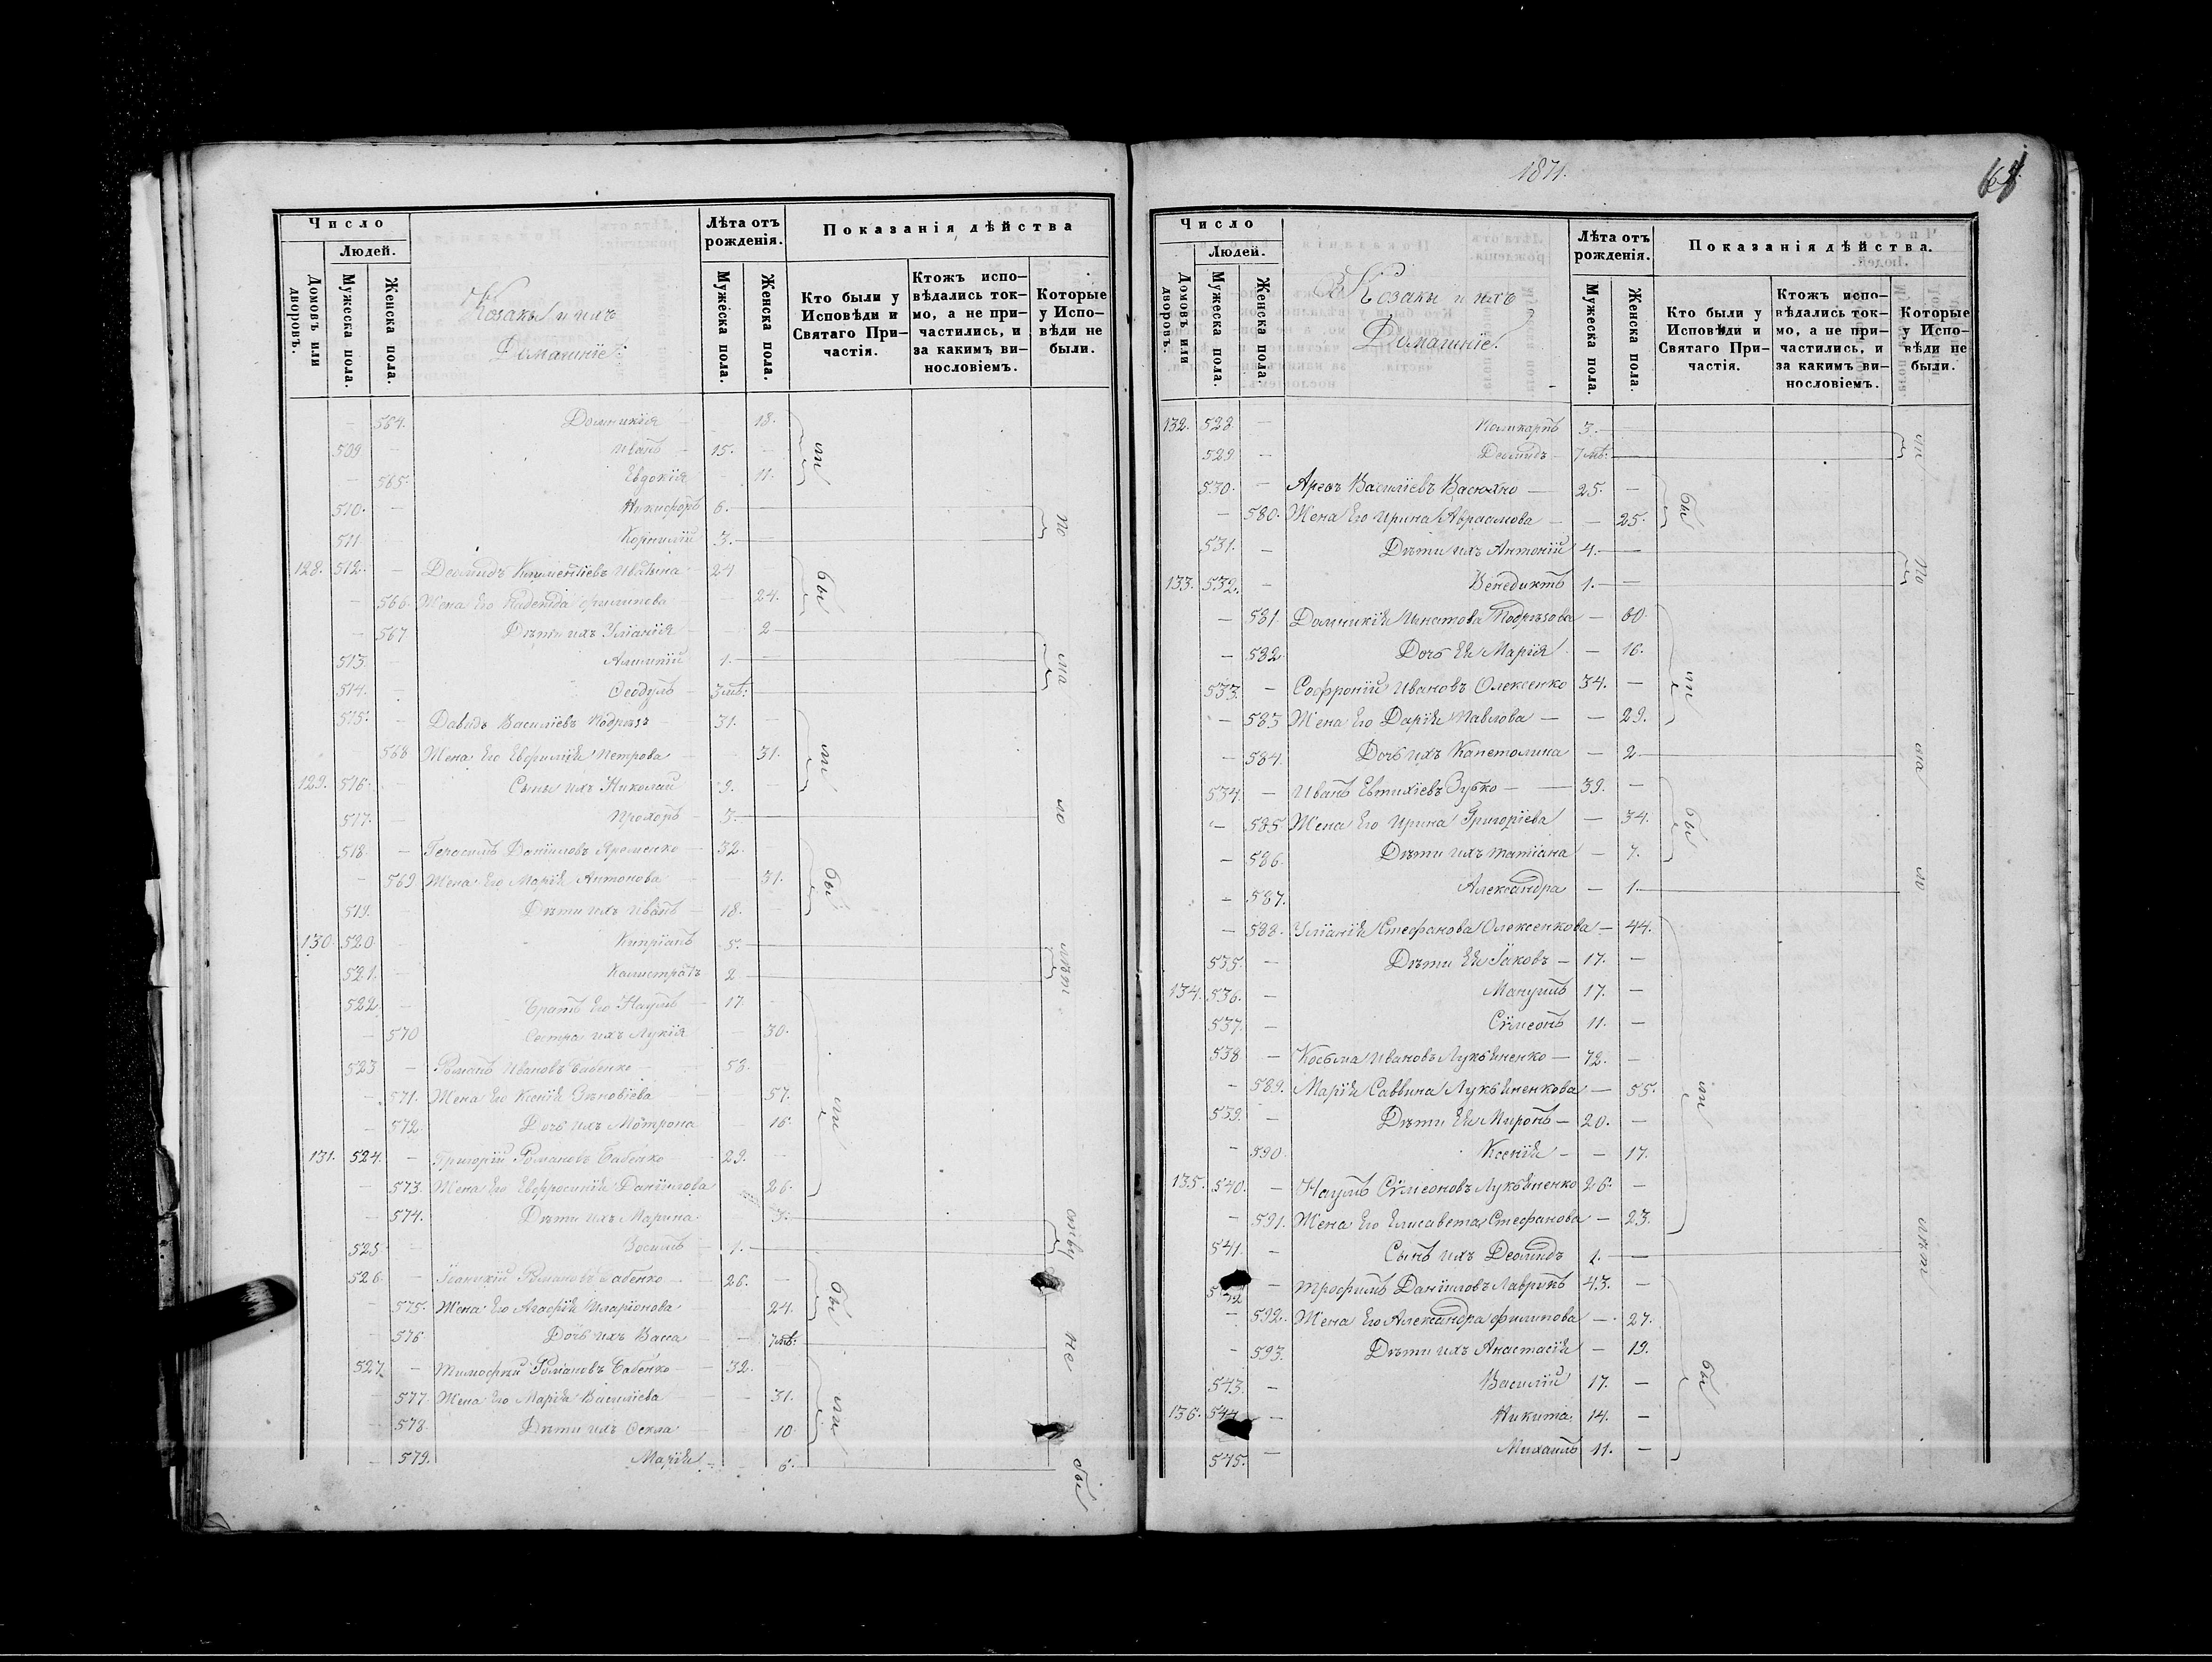 Число
Людей.
Домовъ или дворовъ.
Мужеска пола.
Женска пола.
Козаки и ихъ
Домашніе.
Лѣта отъ рожденія.
Мужеска пола.
Женска пола.
Показанія дѣйства
Кто были у Исповѣди и Святаго При-частія.
Ктожъ испо-вѣдались ток-мо, а не при-частились, и за какимъ ви-нословіемъ.
Которые у Испо-вѣди не были.
— 564. Домникія — 18.
509 — Иванъ — 15. —
— 565. Евдокія — 11.
510. — Никифоръ 6. —
511 — Корнилій 3. —
128. 512. — Деомидъ Климентіевъ 24
— 566. Жена Его Надежда Филипова — 24.
— 567 Дѣти ихъ Уліанія — 2
513. — Алимпій 1. —
514. — Феодулъ — 3 мѣ:
515. — Давидъ Василіевъ Подрѣзъ 31. —
568 Жена Его Евфимія Петрова — 31.
129. 516. — Сыны ихъ Николай 9. —
517. — Прохоръ — 3.
518. — Герасимъ Даніиловъ Яременко — 32. —
— 569 Жена Его Марія Антонова — 31.
519. — Дѣти ихъ Иванъ — 18. —
130. 520 Кипріанъ 5.
521. — Калистратъ 2
522 — Братъ Его Наумъ — 17. —
— 570 Сестра ихъ Лукія — 30.
523 — Романъ Ивановъ Бабенко — 53. —
— 571. Жена Его Ксенія Зѣновіева 57.
— 572. Дочь ихъ Мотрона — 16.
131. 524. — Григорій Романовъ Бабенко — 29. —
— 573. Жена Его Евфросинія Даніилова 26.
— 574. Дѣти ихъ Марина 3.
525 — Зосимъ — 1.
526. — Іоаникій Романовъ Бабенко — 26. —
— 575. Жена Его Агафія Иларіонова — 24.
— 576 Дочь ихъ Васса — 7 мѣ:
527. — Тимофей Романовъ Бабенко — 32. —
577. Жена Его Марія Василіева — 31.
— 578. Дѣти ихъ Фекла — 10
— 579. Марія — 6.
ли
бы
ли
бы
ли
бы
ли
по
ма
ло
лѣт
ству
не
бы
1871.
Число
Людей.
Домовъ или дворовъ.
Мужеска пола.
Женска пола
Козаки и ихъ
Домашніе.
Лѣта отъ рожденія.
Мужеска пола.
Женска пола.
Показанія дѣйства.
Кто были у Исповѣди и Святаго При-частія.
Ктожъ испо-вѣдались ток-мо, а не при-частились, и за какимъ ви-нословіемъ.
Которые у Испо-вѣди не были.
132. 528. — Поликарпъ 3.
529 — Деомидъ — 7 мѣ:
530. — Арефъ Василіевъ Васюхно — 25. —
— 580. Жена Его Ирина Авраамова — — 25.
531. — Дѣти ихъ Антоній 4. —
133. 532. — Венедиктъ 1. —
— 581. Домникія Игнатова Подрѣзова — 60.
— 582. Дочь Ея Марія — 16.
533. — Софроній Ивановъ Олексенко 34. —
— 583 Жена Его Дарія Павлова — — 29.
— 584. Дочь ихъ Капетолина — 2
534. — Иванъ Евтихіевъ Зубко — — 39. —
— 585 Жена Его Ирина Григоріева — 34.
— 586. Дѣти ихъ Татіана — 7.
— 587. Александра — 1.
— 588. Уліанія Стефанова Олексенкова — 44.
535. — Дѣти Ея Іаковъ — 17. —
134. 536. — Мануилъ 17. —
537. — Сѵмеонъ 11. —
538 — Косьма Ивановъ Лукьяненко — 72. —
— 589. Марія Саввина Лукьяненкова — 55.
539. — Дѣти Ея Миронъ — 20. —
— 590. Ксенія — — 17.
135. 540. — Наумъ Сѵмеоновъ Лукьяненко 26. —
— 591. Жена Его Елисавета Стефанова — 23.
541. — Сынъ ихъ Деомидъ 1. —
542 — Трофимъ Даніиловъ Лавринъ 43. —
— 592. Жена Его Александра Филипова — 27.
— 593. Дѣти ихъ Анастасія — 19.
543. — Василій 17. —
136. 544 — Никита 14. —
545. — Михаилъ 11. —
бы
ли
бы
ли
бы
ли
по
ма
ло
лѣт